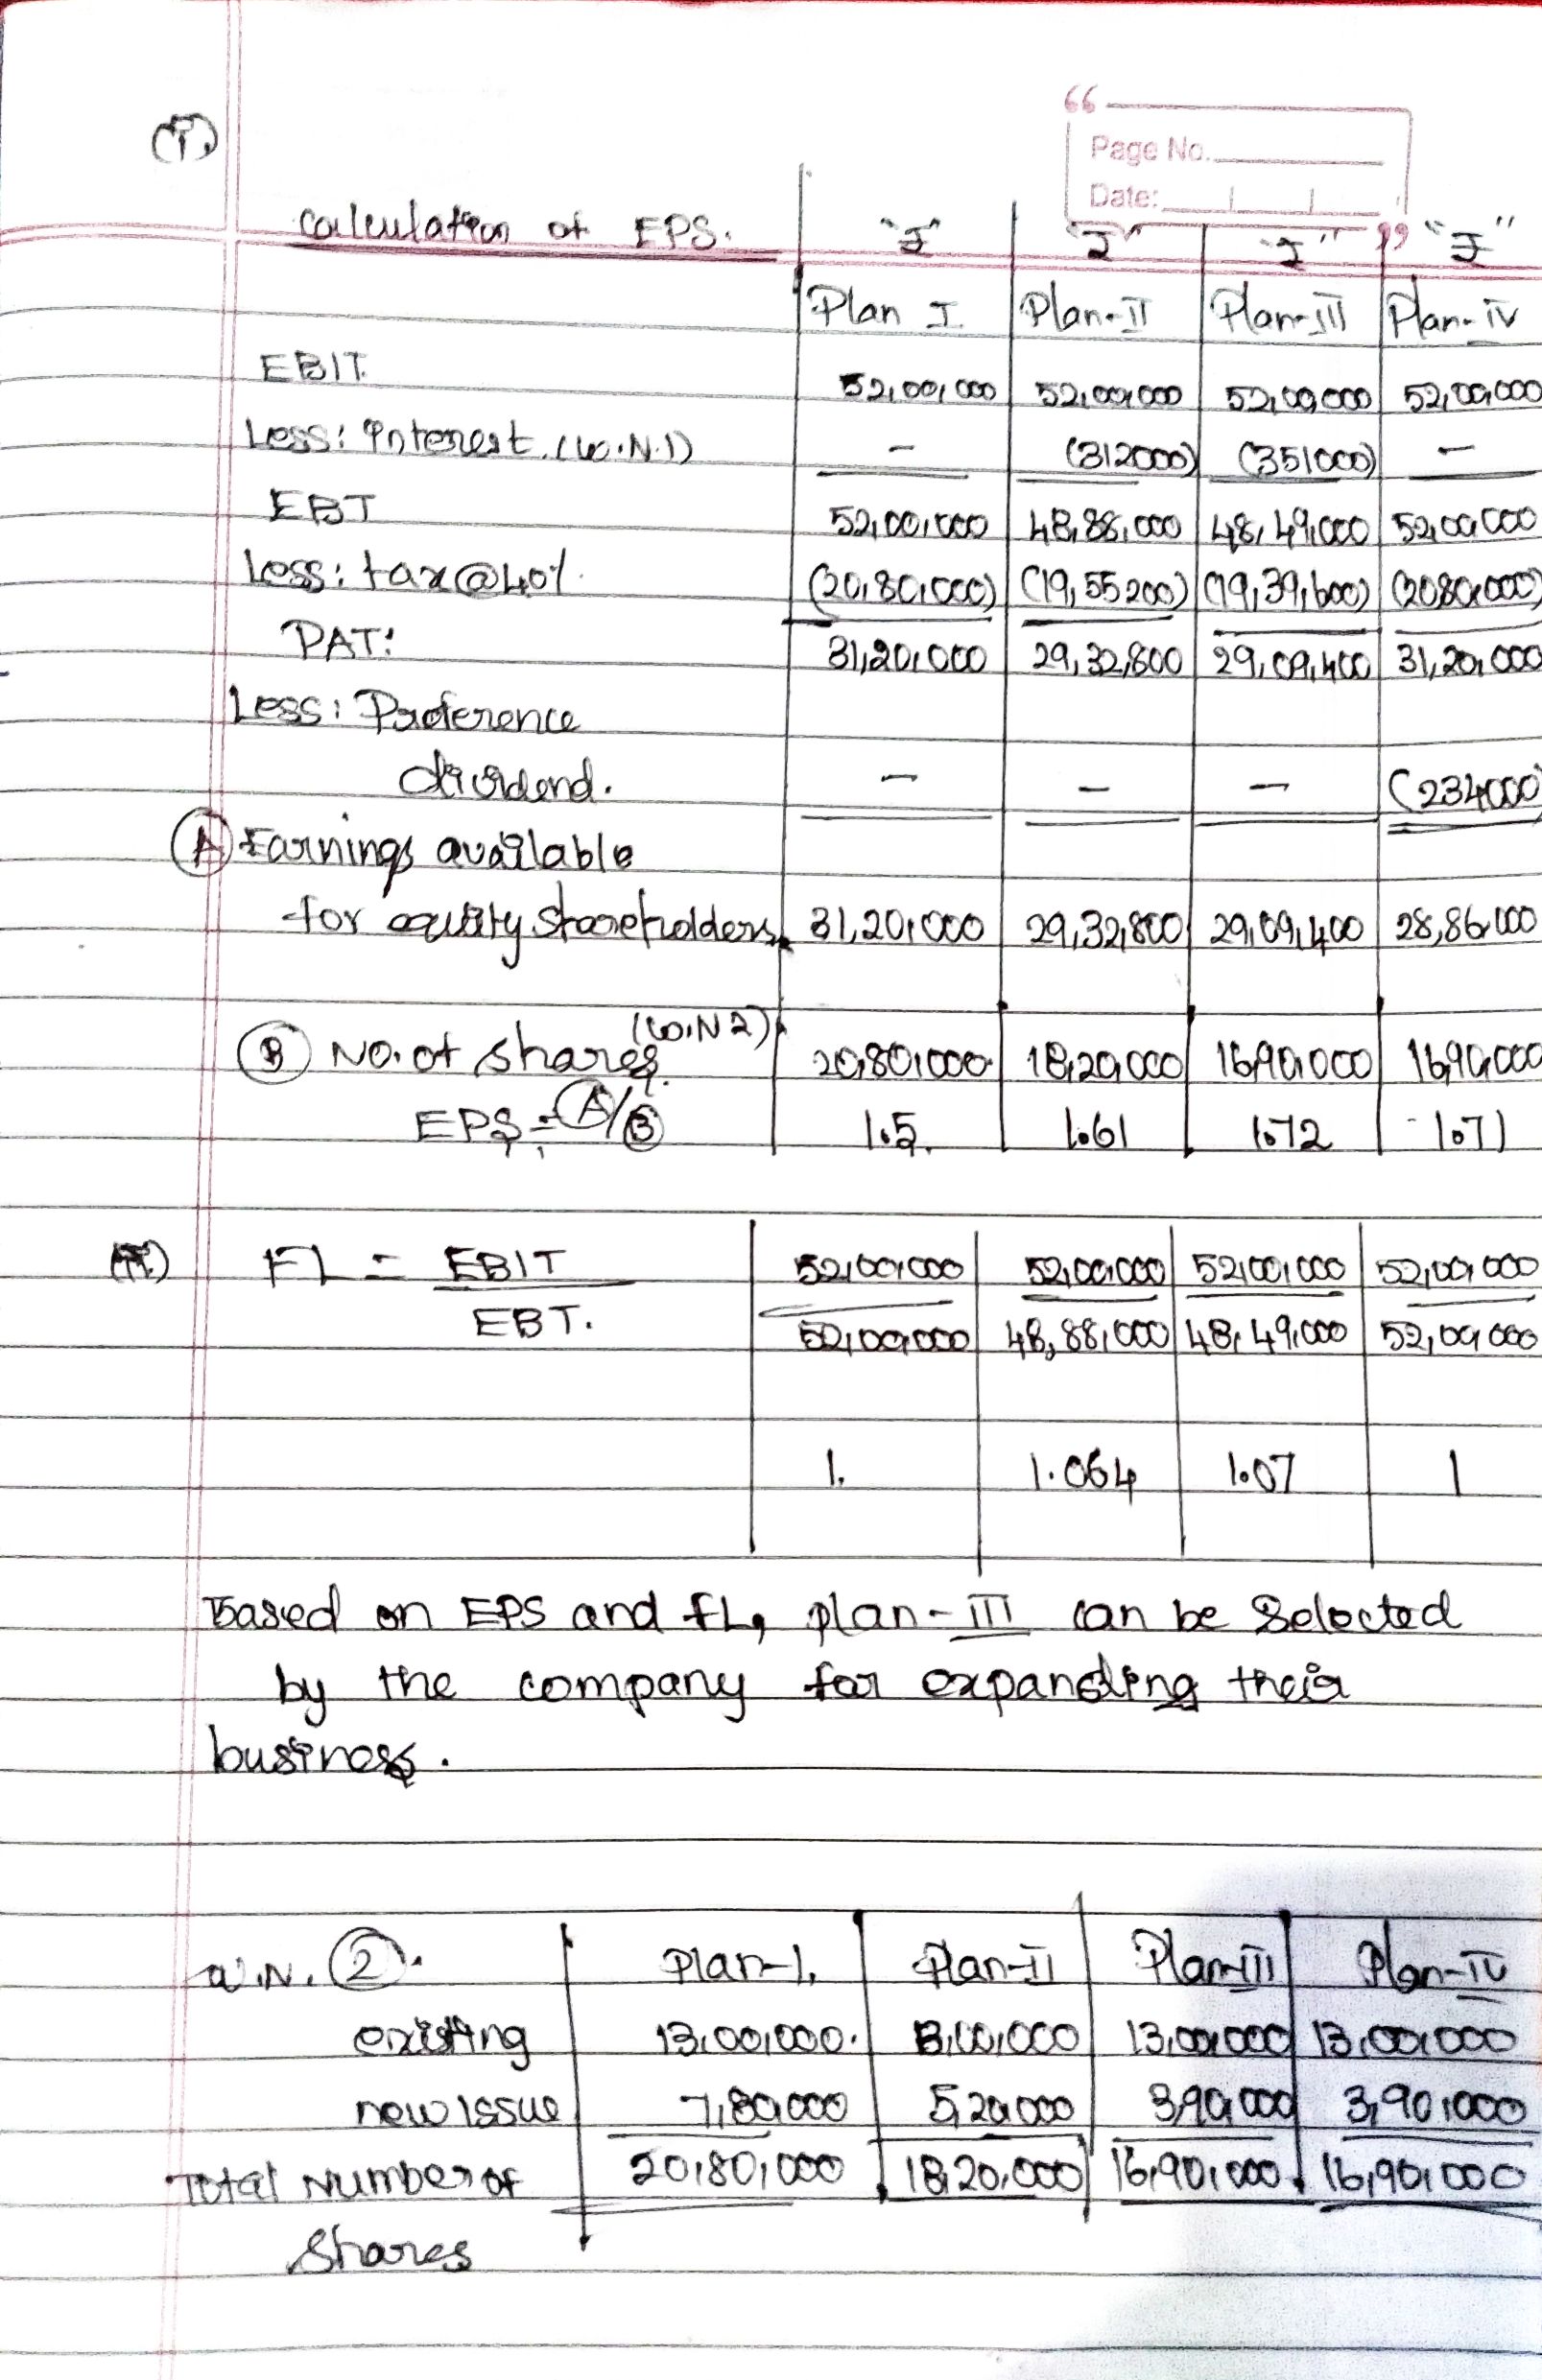 (i)
“
Page No.
Date:
”
Calculation of EPS. "₹" "₹" "₹" "₹"
Plan I Plan-II Plan-III Plan-IV
EBIT 52,00,000 52,00,000 52,00,000 52,00,000
Less: Interest (W.N.1) - (312000) (351000) -
EBT 52,00,000 48,88,000 48,49,000 52,00,000
Less: tax@40% (20,80,000) (19,55200) (19,39,600) (2080,000)
PAT: 31,20,000 29,32,800 29,09,400 31,20,000
Less: Preference
dividend. - - - (234000)
(A) Earnings available
for equity shareholders 31,20,000 29,32,800 29,09,400 28,86,000
(B) No. of shares (W.N 2) 20,80,000 18,20,000 16,90,000 16,90,000
EPS = (A)/(B) 1.5 1.61 1.72 1.71
(ii) FL = EBIT 52,00,000 52,00,000 52,00,000 52,00,000
EBT. 52,00,000 48,88,000 48,49,000 52,00,000
1. 1.064 1.07 1
Based on EPS and FL, plan-III can be selected
by the company for expanding their
business.
W.N. (2). Plan-I. Plan-II Plan-III Plan-IV
existing 13,00,000. 13,00,000 13,00,000 13,00,000
new issue 7,80,000 5,20,000 3,90,000 3,90,000
Total Number of 20,80,000 18,20,000 16,90,000 16,90,000
Shares